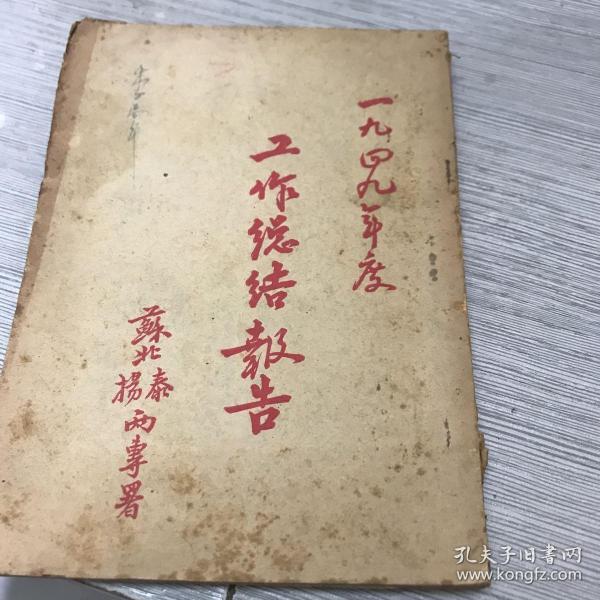 一九四九年度
工作總结報告
蘇北泰揚兩專署
孔夫子旧書网
www.kongfz.com